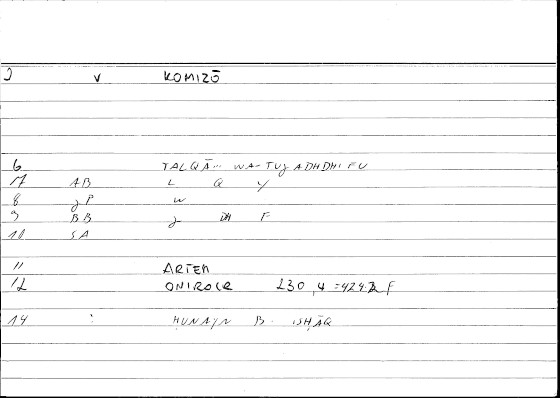 2 V KOMIZŌ
6 TALQĀ... WA-TUJADHDHIFU
17 AB L Q Y
8 JP W
9 BB J DH F
10 SA
11 ARTEM
12 ONIROCR 230,4=424.2 F
14 : ḤUNAYN B. ISḤĀQ